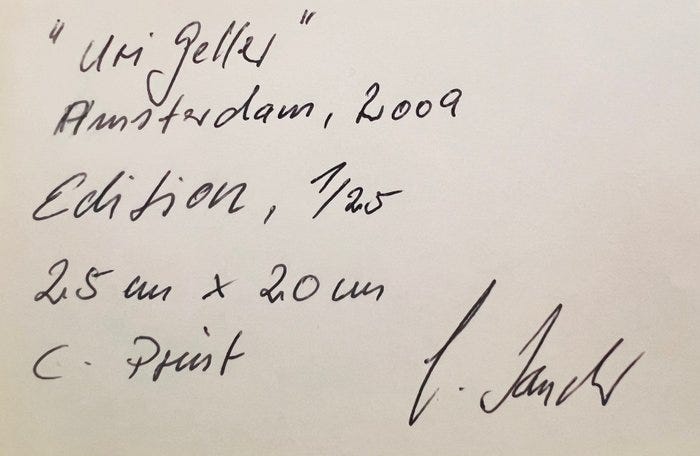 "Uri Geller"
Amsterdam, 2009
Edition, 1/25
25 cm x 20 cm
C. Print